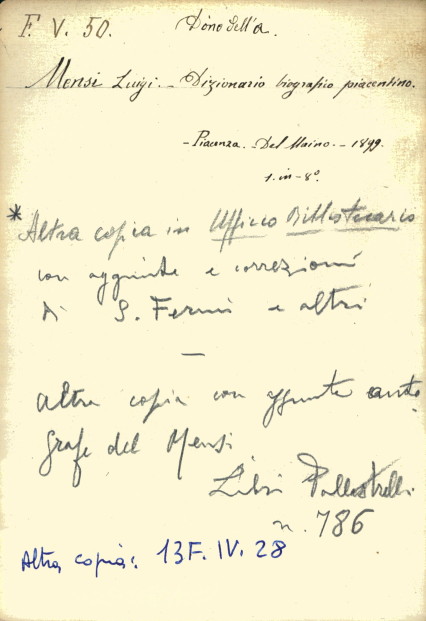 F. V. 50. Dono dell'A.
Mensi Luigi. - Dizionario biografico piacentino.
- Piacenza. - Del Maino. - 1899.
1. in-8°
* Altra copia in Ufficio Bibliotecario
con aggiunte e correzioni
di S. Fermi e altri
—
Altra copia con aggiunte auto
grafe del Mensi
Libri Pallastrelli
n. 786
Altra copia: 13F. IV. 28